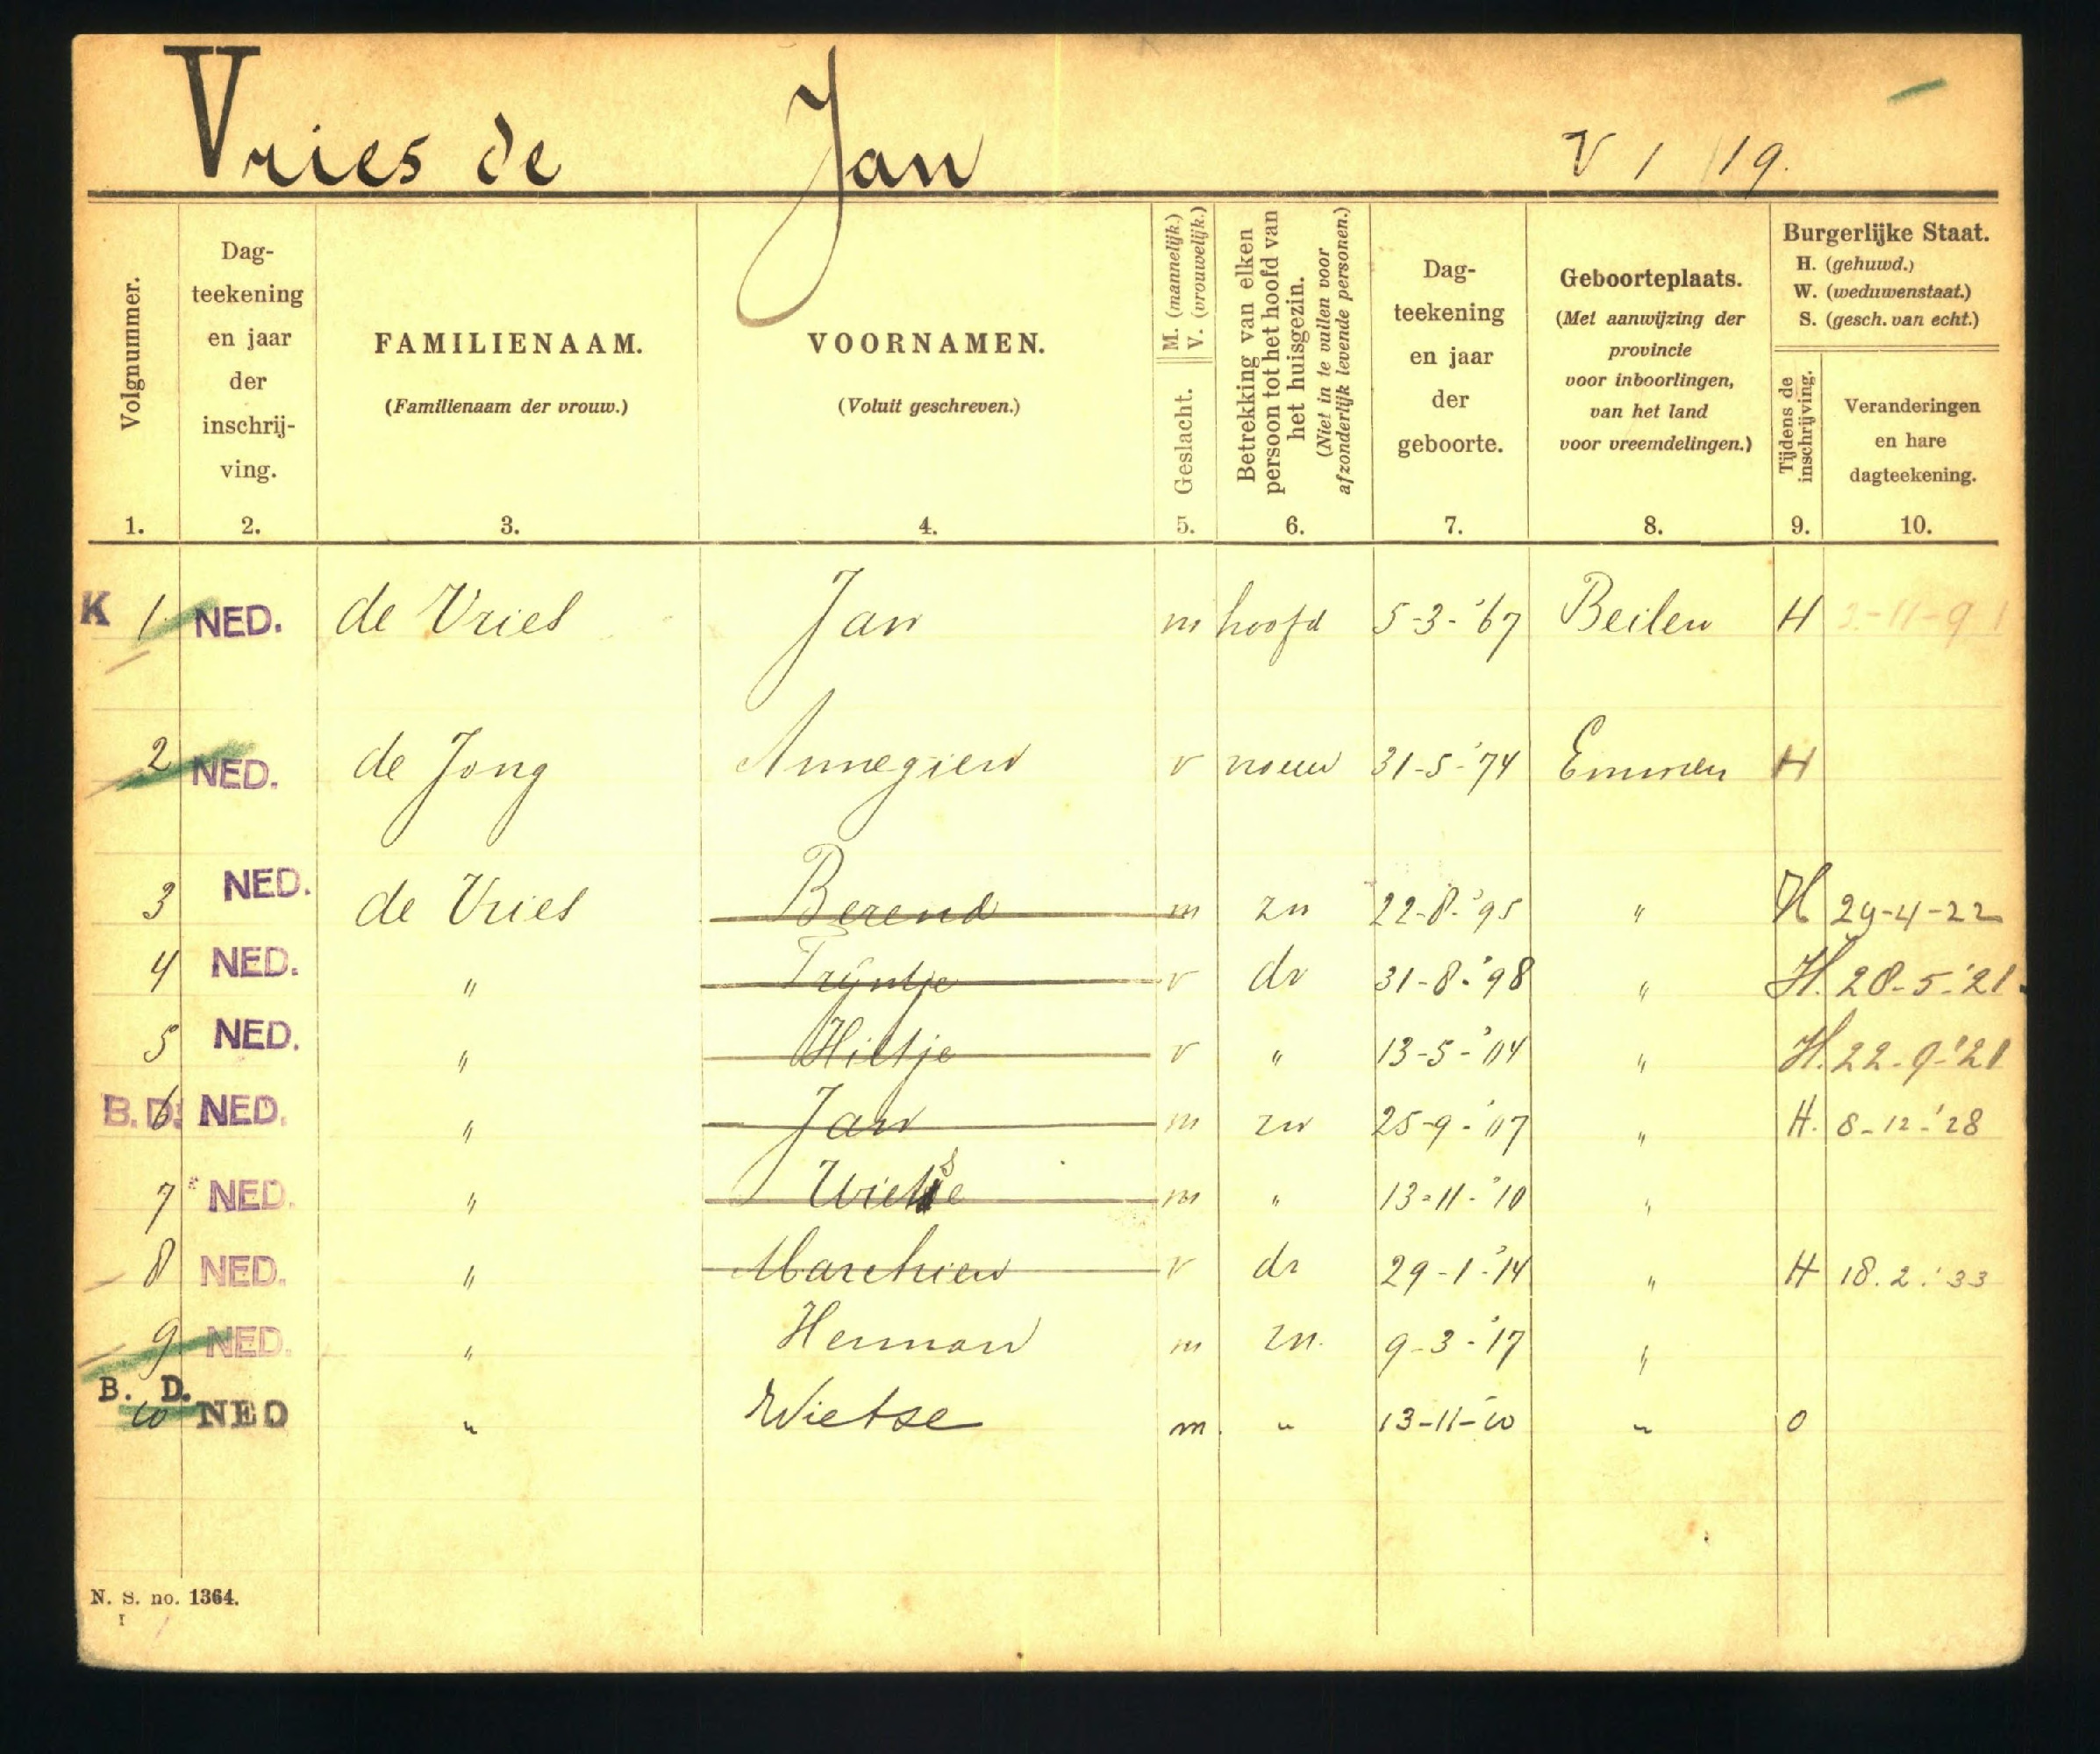 Vries de Jan V 1 19.
Volgnummer.
Dag-
teekening
en jaar
der
inschrij-
ving.
FAMILIENAAM.
(Familienaam der vrouw.)
VOORNAMEN.
(Voluit geschreven.)
M. (mannelijk.)
V. (vrouwelijk.)
Geslacht.
Betrekking van elken
persoon tot het hoofd van
het huisgezin.
(Niet in te vullen voor
afzonderlijk levende personen.)
Dag-
teekening
en jaar
der
geboorte.
Geboorteplaats.
(Met aanwijzing der
provincie
voor inboorlingen,
van het land
voor vreemdelingen.)
Burgerlijke Staat.
H. (gehuwd.)
W. (weduwenstaat.)
S. (gesch. van echt.)
Tijdens de
inschrijving.
Veranderingen
en hare
dagteekening.
1. 2. 3. 4. 5. 6. 7. 8. 9. 10.
K 1 NED. de Vries Jan m hoofd 5-3-'67 Beilen H 3-11-91
2 NED. de Jong Annegien v vrouw 31-5-'74 Emmen H
3 NED. de Vries Berend m zn 22-8-'95 " H 29-4-22
4 NED. " Trijntje v dr 31-8-'98 " H. 28-5-'21.
5 NED. " Hiltje v " 13-5-'04 " H. 22-9-'21
B.D. 6 NED. " Jan m zn 25-9-'07 " H. 8-12-'28
7 NED. " Wietse m " 13-11-'10 "
8 NED. " Marchien v dr 29-1-'14 " H 18.2.'33
9 NED. " Herman m zn. 9-3-'17 "
B. D. 10 NED " Wietse m. " 13-11-'10 " O
N. S. no. 1364.
I